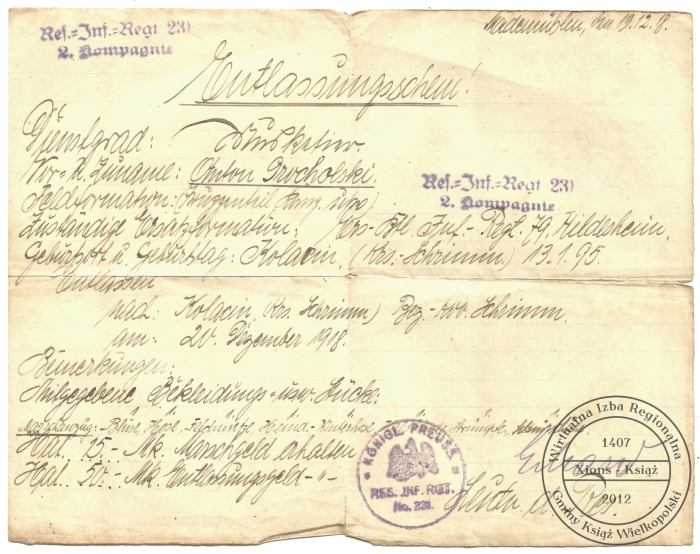 Res.=Inf.=Regt 231
2. Kompagnie
Mademühlen, den 19.12.18.
Entlassungsschein!
Dienstgrad: Musketier.
Vor- u. Zuname: Anton Grocholski.
Feldformation: (Truppenteil Komp. usw.)
Res.=Inf.=Regt 231
2. Kompagnie
Zuständige Ersatzformation: Ers-Btl. Inf.-Regt. 79, Hildesheim.
Geburtsort u. Geburtstag: Kolacin, (Krs.-Schrimm) 13.1.95.
Entlassen
nach: Kolacin, (Krs. Schrimm) Bez.-Kdo. Schrimm.
am: 20. Dezember 1918.
Bemerkungen:
Mitgegebene Bekleidungs-usw. Stücke.
Marschanzug: Bluse, Hose, Feldmütze, Hemd,
Hat 15.- Mk. Marschgeld erhalten
Hat 50.- Mk. Entlassungsgeld -"-
KÖNIGL. PREUSS.
RES. INF. RGT.
No. 231.
Leutn. d. Res.
Wirtualna Izba Regionalna
1407
Xions - Książ
2012
Gminy Książ Wielkopolski